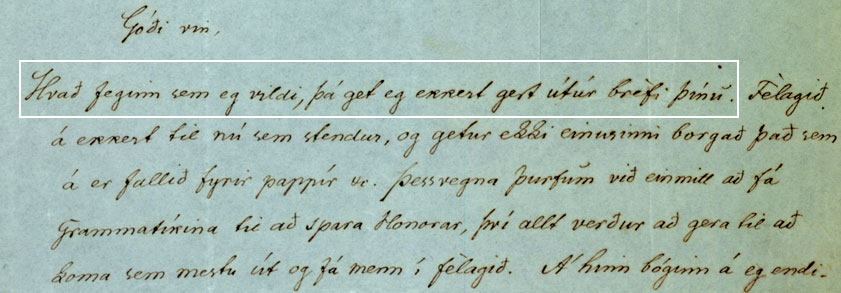 Góði vin,
Hvað feginn sem eg vildi, þá get eg ekkert gert útúr bréfi þínu. Félagið
á ekkert til nú sem stendur, og getur ekki einusinni borgað það sem
á er fallið fyrir pappír &c. Þessvegna þurfum við einmitt að fá
Grammatíkina til að spara Honorar, því allt verður að gera til að
koma sem mestu út og fá menn í félagið. Á hinn bóginn á eg endi-